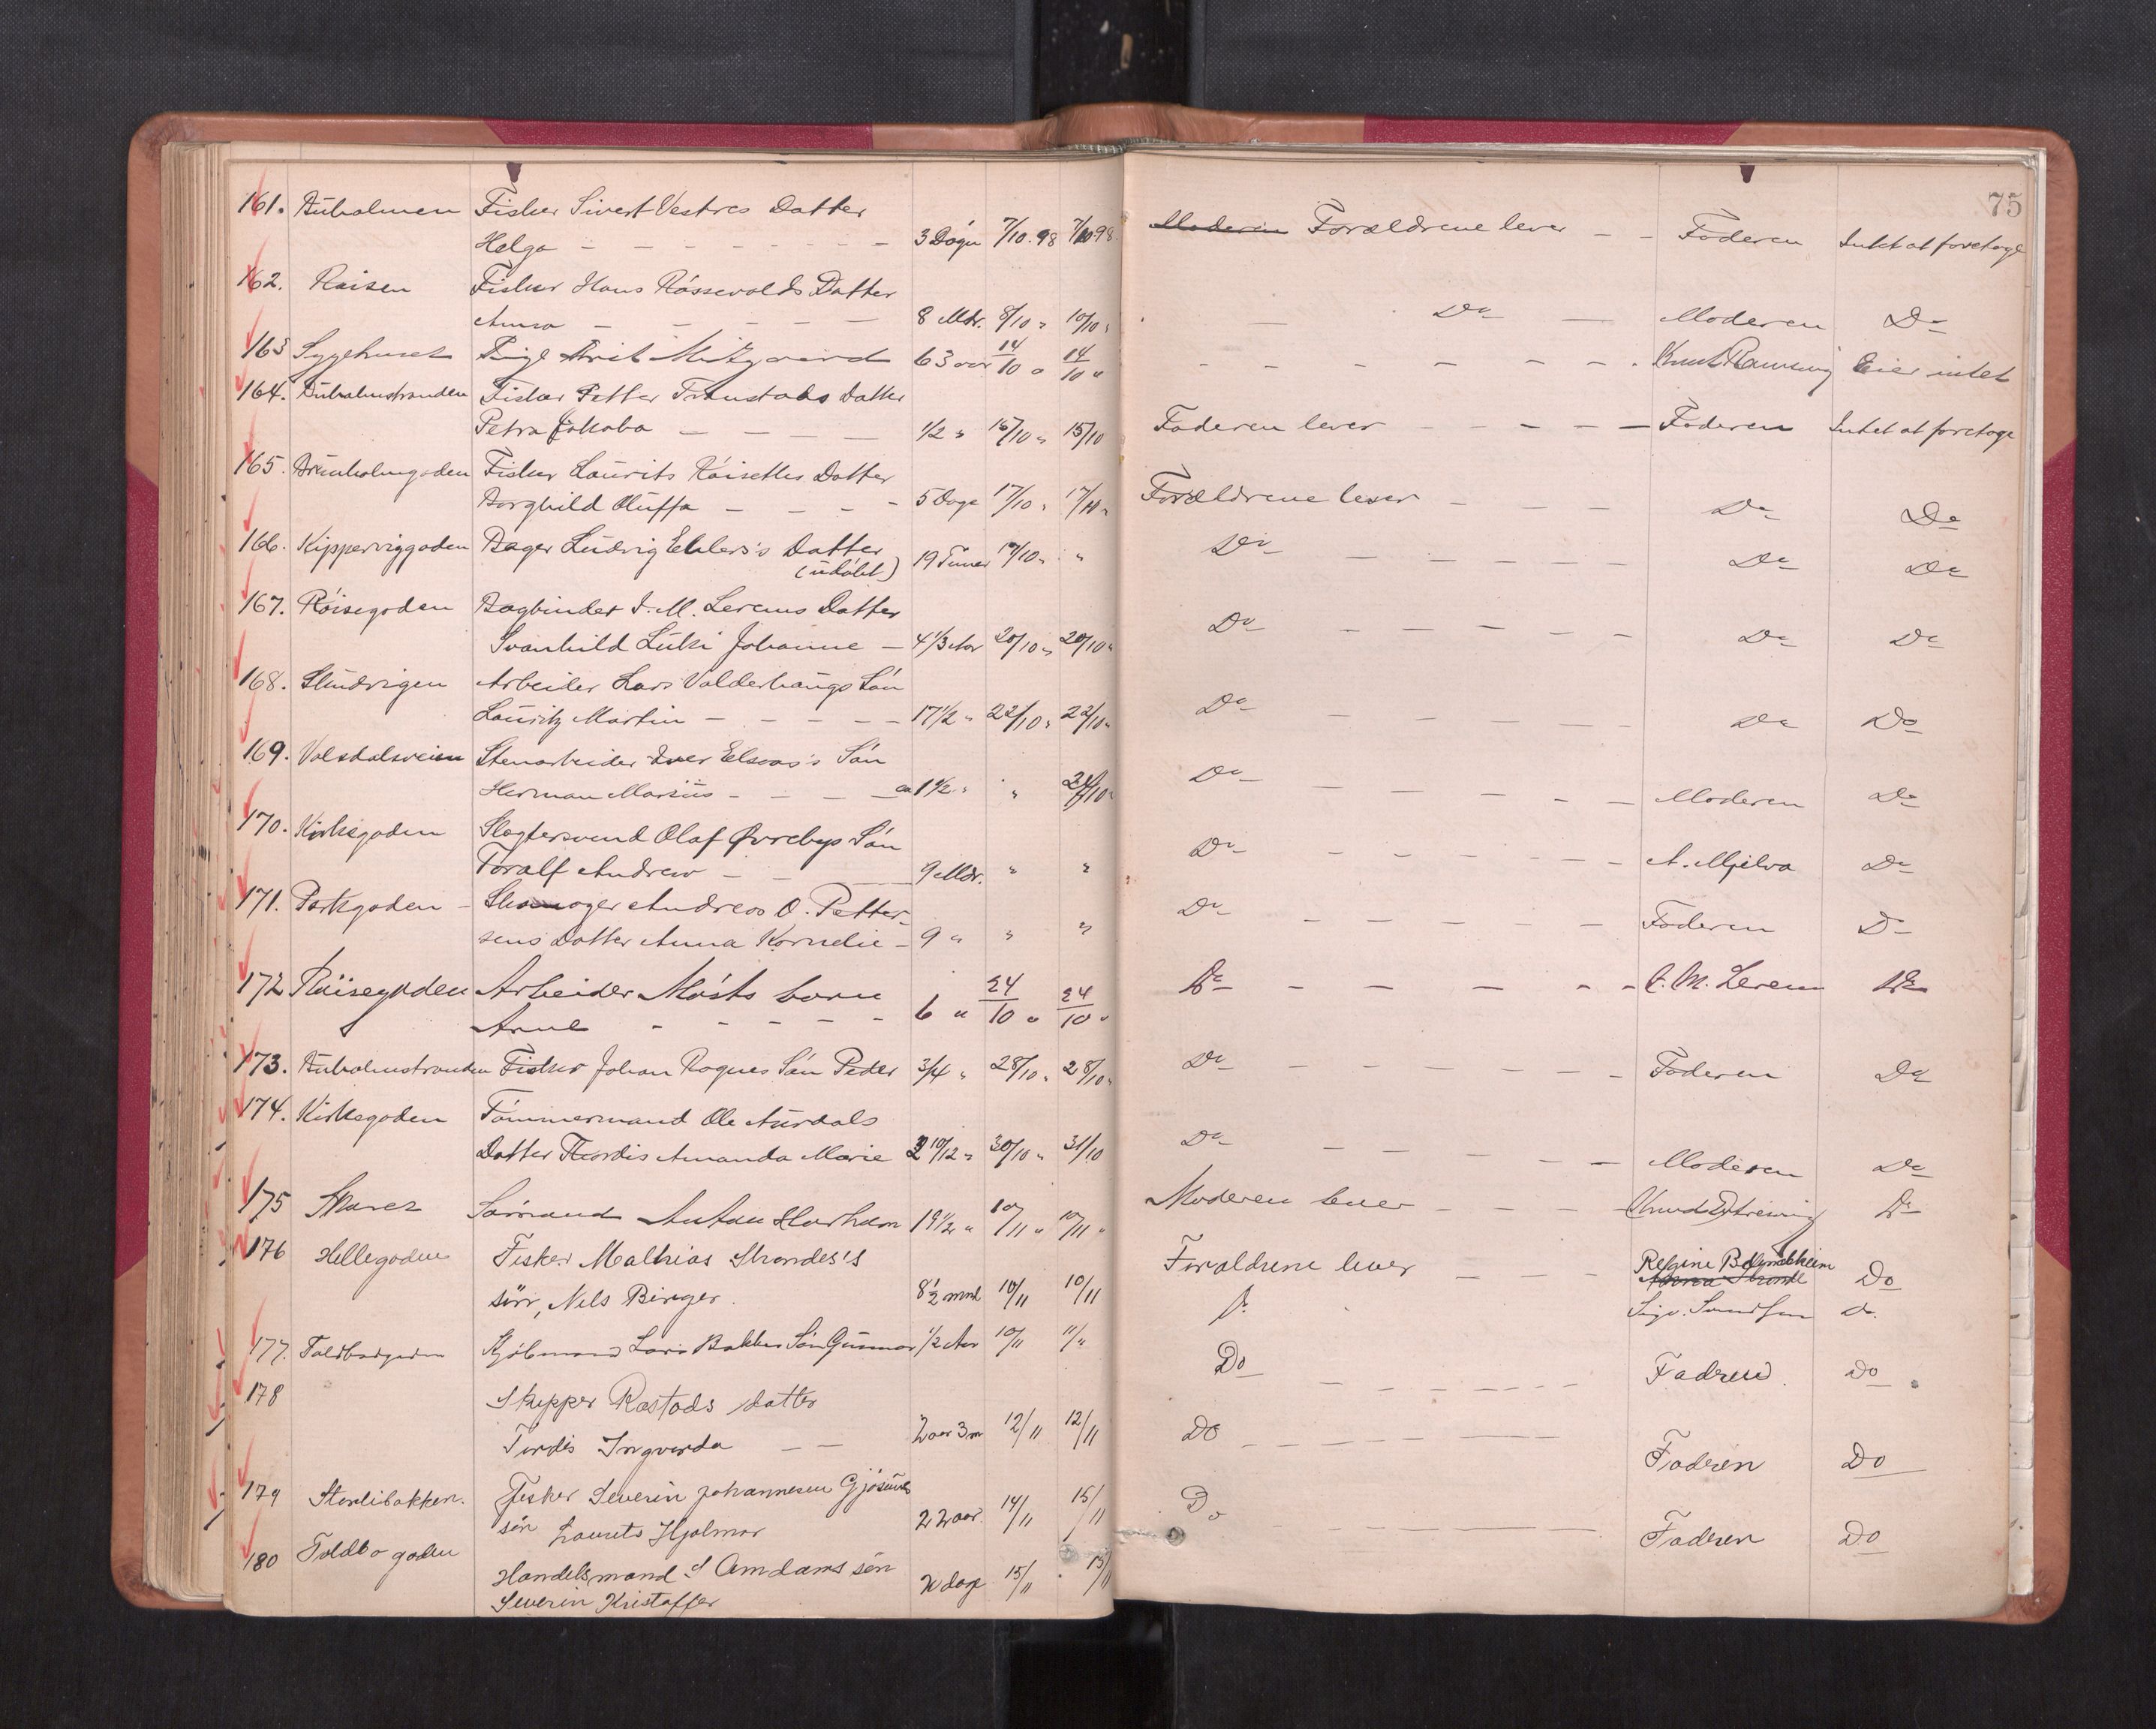 75
161. Buholmen Fisker Sivert Vestres Datter
Helga — — 3 Døgn 7/10.98 7/10.98 Moderen Forældrene lever — Faderen Intet at foretage
162. Kaisen Fisker Hans Røssevolds Datter
Anna — — 8 Mdr. 8/10 " 10/10 " — Do — Moderen Do
163 Sygehuset Pige 63 aar 14/10 " 14/10 " — — Eier intet
164. Buholmstranden Fisker Petter Datter
Petra Jakoba — — 1/2 " 15/10 " 15/10 Faderen lever — — Faderen Intet at foretage
165. Brunholmgaden Fisker Laurits Røisethes Datter
Borghild Oluffa — — 5 Dage 17/10 " 17/10 " Forældrene lever — — Do Do
166. Kipperviggaden Bager Ludvig Ehlers's Datter
(udøbt) 19 Timer 17/10 " " Do — — Do Do
167. Røisegaden Bogbinder I. M. Lerems Datter
Svanhild Johanne — 4 1/3 Aar 20/10 " 20/10 " Do — — Do Do
168. Slindvigen Arbeider Lars Valderhaugs Søn
Lauritz Martin — — 17 1/2 " 22/10 " 22/10 " Do — — Do Do
169. Volsdalsveien Stenarbeider Iver Elsaas's Søn
Herman Marius — — ca 1 1/2 " " 24/10 " Do — — Moderen Do
170. Kirkegaden Slagtersvend Olaf Øvrebys Søn
Toralf Andreas — — 9 Mdr. " " Do — — A. Mjelva Do
171. Parkgaden — Skomager Andreas O. Petter-
sens Datter Anna Kornelie — 9 " " " Do — — Faderen Do
172 Røisegaden Arbeider Møsts barn
Arne — — 6 " 24/10 " 24/10 " Do — — M. Lerem Do
173. Buholmstranden Fisker Johan Rognes Søn Peder 3/4 " 28/10 " 28/10 " Do — — Faderen Do
174. Kirkegaden Tømmermand Ole Aurdals
Datter Thordis Amanda Marie 2 10/12 " 30/10 " 31/10 Do — — Moderen Do
175 Sømand Anton Harham 19 1/2 " 10/11 " 10/11 " Moderen lever — — Do
176 Hellegaden Fisker Mathias Strandes's Forældrene lever — — Regine
Anna Strande Do
søn, Nels Birger. 8 1/2 mnd 10/11 10/11
177. Toldbodgaden Kjøbmand Lars Bakkes Søn Gunnar 1/2 Aar 10/11 11/" Do Sigv. Do.
178 Skipper Rastads datter Do — — Fadren. Do
Tordis Ingvarda — — 2 aar 3 m 12/11 12/11 Do — — Fadren Do
179 Storlibakken. Fisker Severin Johannesen Gjøsunds
søn Laurits Hjalmar 22 aar. 14/11 15/11 Do — — Fadren Do
180 Toldbogaden Handelsmand Amdams søn
Severin Kristoffer dage 15/11 15/11